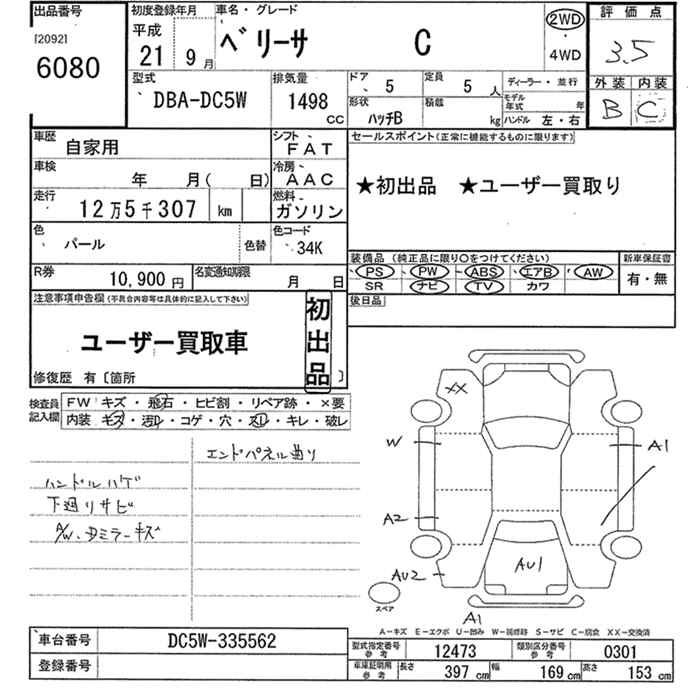 出品番号
[2092]
6080
初度登録年月
平成
21 9月
車名・グレード
ベリーサ C
2WD
・
4WD
評価点
3.5
外装 内装
B C
型式
DBA-DC5W
排気量
1498
CC
ドア 5
定員 5 人
形状 ハッチB
積載 kg
ディーラー・並行
モデル年式 年
ハンドル 左・右
車歴 自家用
シフト FAT
車検 年 月( 日)
冷房 AAC
走行 12万5千307 km
燃料 ガソリン
色 パール 色替
色コード 34K
R券 10,900円
名変通知期限 月 日
セールスポイント(正常に機能するものに限ります)
★初出品 ★ユーザー買取り
装備品 (純正品に限り○をつけてください)
PS PW ABS エアB AW
SR ナビ TV カワ
新車保証書
有・無
後日品
注意事項申告欄(不具合内容等は具体的に記入して下さい)
ユーザー買取車
初出品
修復歴 有〔箇所 〕
検査員記入欄
FW キズ・飛石・ヒビ割・リペア跡・×要
内装 キズ・汚れ・コゲ・穴・スレ・キレ・破レ
エンドパネル曲り
ハンドルハゲ
下廻りサビ
A/W、Dミラーキズ
XX
W
A1
A2
AU1
AU2
A1
スペア
A-キズ E-エクボ U-凹み W-補修跡 S-サビ C-腐食 XX-交換済
車台番号 DC5W-335562
登録番号
型式指定番号参考 12473
類別区分番号参考 0301
車庫証明用参考 長さ 397 cm 幅 169 cm 高さ 153 cm